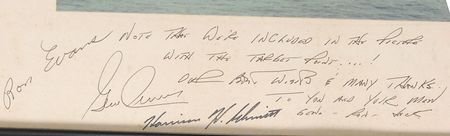 Ron Evans
NOTE THAT WE'RE INCLUDED IN THE PICTURE
WITH THE TARGET POINT....!
OUR BEST WISHES & MANY THANKS,
TO YOU AND YOUR MOM
Gene Cernan
Harrison H. Schmitt
GENO - RON - JACK